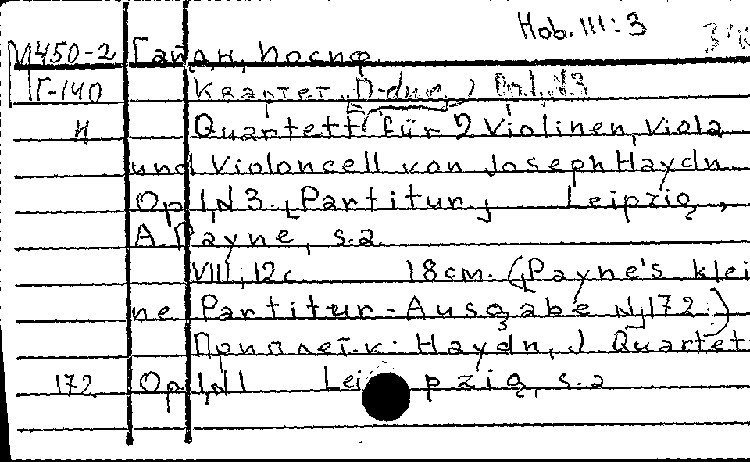 Hob. III: 3
М450-2 Гайдн, Йосиф.
Г-140 Квартет, D-dur, Op.1, N3
И Quartett für 2 Violinen, Viola
und Violoncell von Joseph Haydn
Op 1, N 3. [Partitur.] Leipzig,
A. Payne, s.a.
VIII, 12 c. 18 cm. (Payne's klei
ne Partitur-Ausgabe N 172.)
Приплет. к: Haydn, J Quartet
172 Op 1, N1 Leipzig, s.a